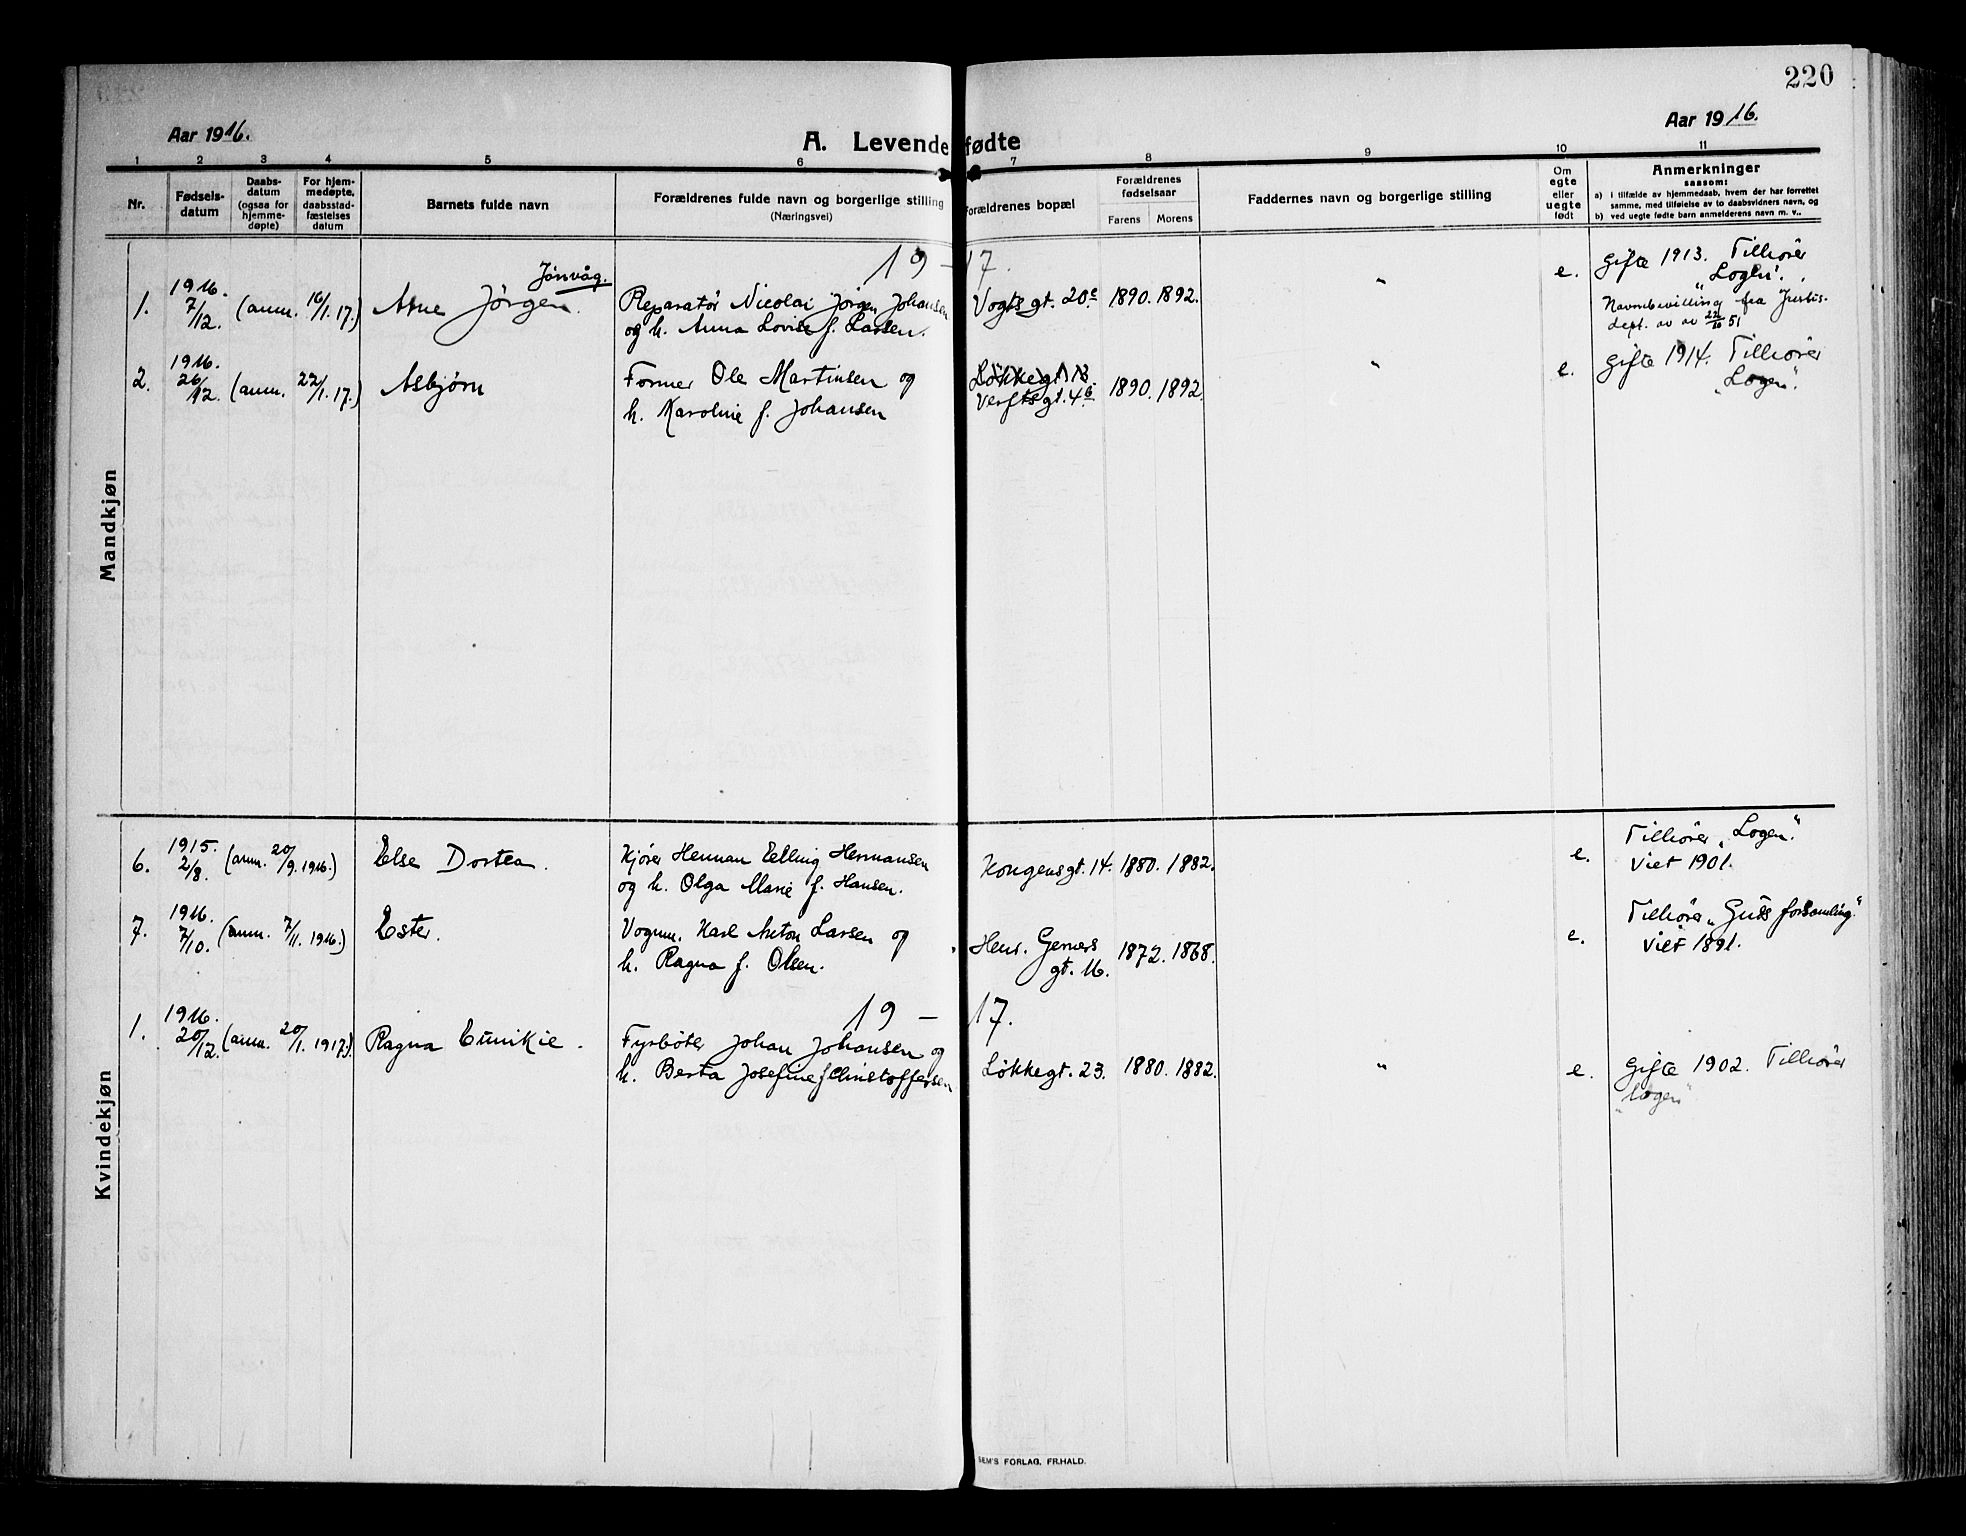 220
Aar 1916.
Aar 1916.
A. Levende fødte
1 2 3 4 5 6 7 8 9 10 11
Nr.
Fødsels-
datum
Daabs-
datum
(ogsaa for
hjemme-
døpte)
For hjem-
medøpte,
daabsstad-
fæstelses
datum
Barnets fulde navn
Forældrenes fulde navn og borgerlige stilling
(Næringsvei)
Forældrenes bopæl
Forældrenes
fødselsaar
Farens Morens
Faddernes navn og borgerlige stilling
Om
egte
eller
uegte
født
Anmerkninger
saasom:
a) i tilfælde av hjemmedaab, hvem der har forrettet
samme, med tilføielse av to daabsvidners navn, og
b) ved uegte fødte barn anmelderens navn m. v..
Mandkjøn
19 - 17.
1.
1916.
7/12.
(anm. 16/1. 17.)
Jönvåg.
Arne Jörgen.
Reparatør Nicolai Jörgen Johansen
og h. Anna Lovise f. Larsen.
Vogtsgt. 20c
1890. 1892.
"
e.
Gifte 1913. Tilhører
"Logen".
Navnebevilling fra Justis-
dept. av av 22/10 51
2.
1916.
26/12.
(anm. 22/1. 17.)
Asbjørn
Former Ole Martinsen og
h. Karoline f. Johansen
Løkkegt. 13.
Verftsgt. 4b
1890. 1892.
"
e.
Gifte 1914. Tilhører
"Logen".
Kvindekjøn
6.
1915.
2/8.
(anm. 20/9. 1916.)
Else Dortea.
Kjører Herman Elling Hermansen
og h. Olga Marie f. Hansen.
Kongensgt. 14.
1880. 1882.
e.
Tilhører "Logen".
Viet 1901.
7.
1916.
7/10.
(anm. 7/11. 1916.)
Ester.
Vognm. Karl Anton Larsen og
h. Ragna f. Olsen.
Henr. Gerners
gt. 16.
1872. 1868.
e.
Tilhører "Guds forsamling."
Viet 1891.
19 - 17.
1.
1916.
20/12.
(anm. 20/1. 1917.)
Ragna Eunikie.
Fyrbøter Johan Johansen og
h. Berta Josefine f. Christoffersen
Løkkegt. 23.
1880. 1882.
"
e.
Gifte 1902. Tilhører
"Logen"
SEM'S FORLAG, FR.HALD.